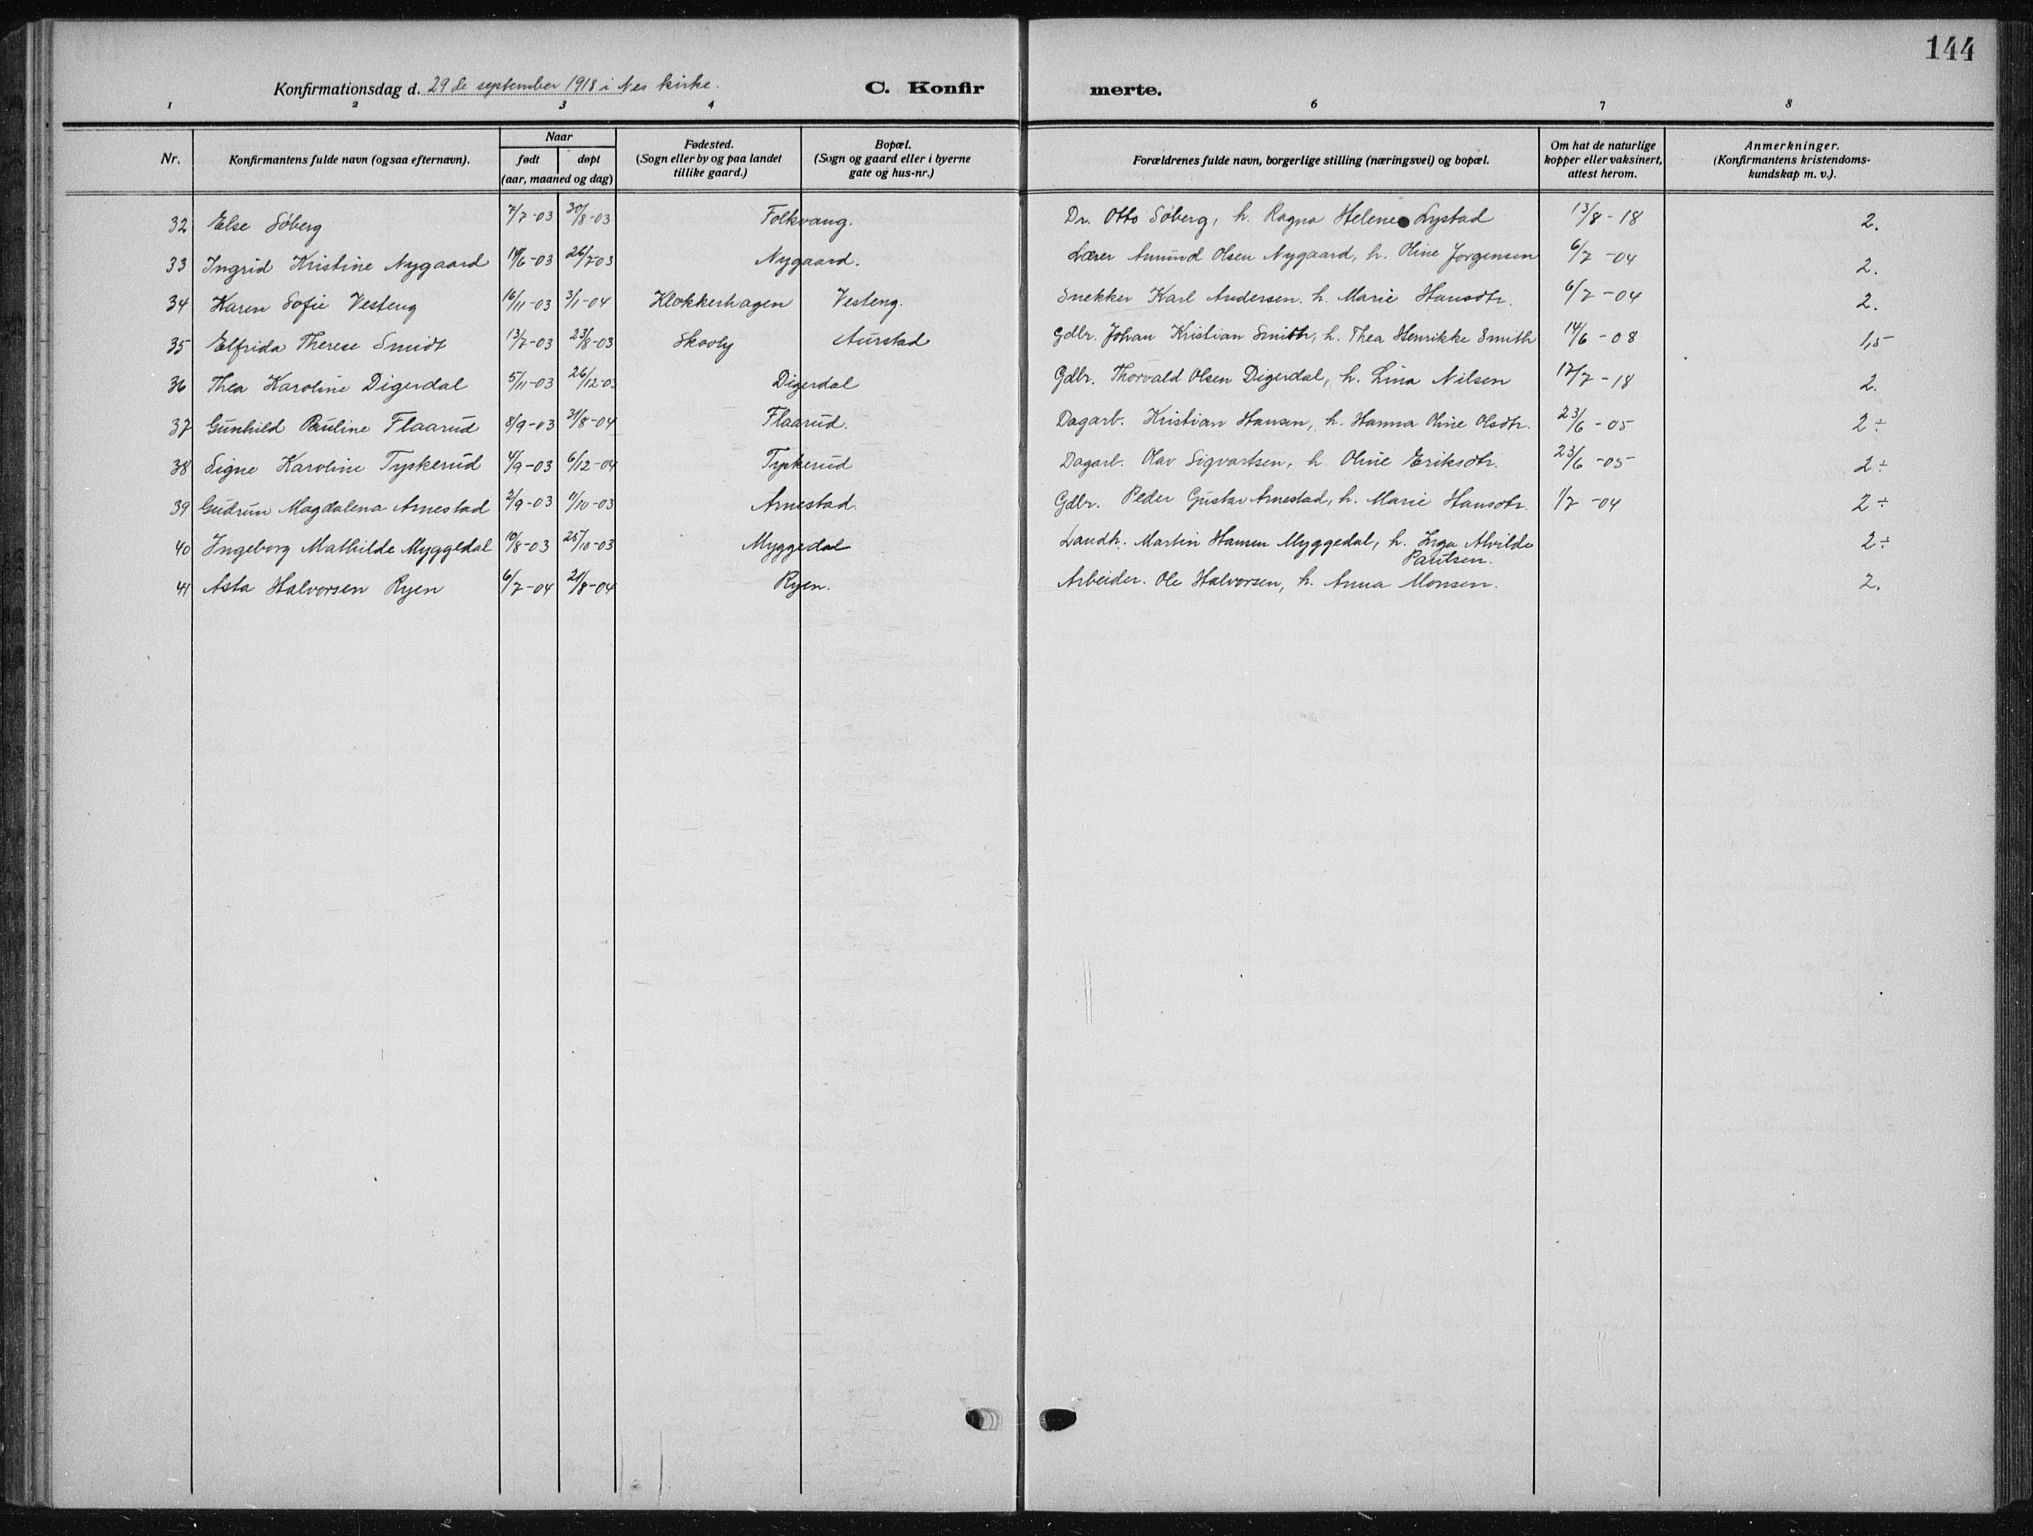 144
Konfirmationsdag d. 29 de september 1918 i Nes kirke. C. Konfir merte.
1 2 3 4 6 7 8
Nr. Konfirmantens fulde navn (ogsaa efternavn). Naar født døpt (aar, maaned og dag) Fødested. (Sogn eller by og paa landet tillike gaard.) Bopæl. (Sogn og gaard eller i byerne gate og hus-nr.) Forældrenes fulde navn, borgerlige stilling (næringsvei) og bopæl. Om hat de naturlige kopper eller vaksinert, attest herom. Anmerkninger. (Konfirmantens kristendoms-kundskap m. v.).
32 Else Søberg 7/7-03 30/8-03 Folkvang. Dr. Otto Søberg, h. Ragna Helene Lystad 13/8-18 2.
33 Ingrid Kristine Nygaard /6-03 26/7-03 Nygaard. Lærer Amund Olsen Nygaard, h. Oline Jørgensen 6/7-04 2.
34 Karen Sofie Vesteng 16/11-03 3/1-04 Klokkerhagen Vesteng. Snekker Karl Andersen. h. Marie Hansdtr. 6/7-04 2.
35 Elfrida Therese Smidt 13/7-03 23/8-03 Skovly Aurstad Gdbr. Johan Kristian Smith, h. Thea Henrikke Smith 14/6-08 1,5
36 Thea Karoline Digerdal 5/11-03 26/12-03 Digerdal Gdbr. Thorvald Olsen Digerdal, h. Lina Nilsen 17/7-18 2.
37 Gunhild Pauline Flaarud 8/9-03 31/8-04 Flaarud. Dagarb. Kristian Hansen, h. Hanna Oline Olsdtr. 23/6-05 2÷
38 Signe Karoline Tyskerud 4/9-03 6/12-04 Tyskerud Dagarb. Olav Sigvartsen, h. Oline Eriksdtr. 23/6-05 2÷
39 Gudrun Magdalena Arnestad 2/9-03 11/10-03 Arnestad. Gdbr. Peder Gustav Arnestad, h. Marie Hansdtr. 1/7-04 2÷
40 Ingeborg Mathilde Myggedal 10/8-03 25/10-03 Myggedal Landh. Martin Hansen Myggedal, h. Inga Alvilde Paulsen. 2÷
41 Asta Halvorsen Ryen 6/7-04 21/8-04 Ryen. Arbeider. Ole Halvorsen, h. Anna Monsen. 2.